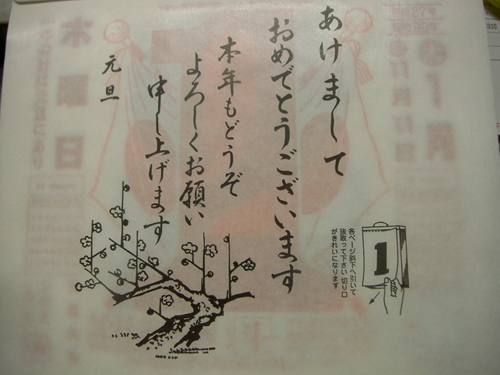 あけまして
おめでとうございます
本年もどうぞ
よろしくお願い
申し上げます
元旦
1
各ページ斜下へ引いて
抜取って下さい切り口
がきれいになります
木曜日